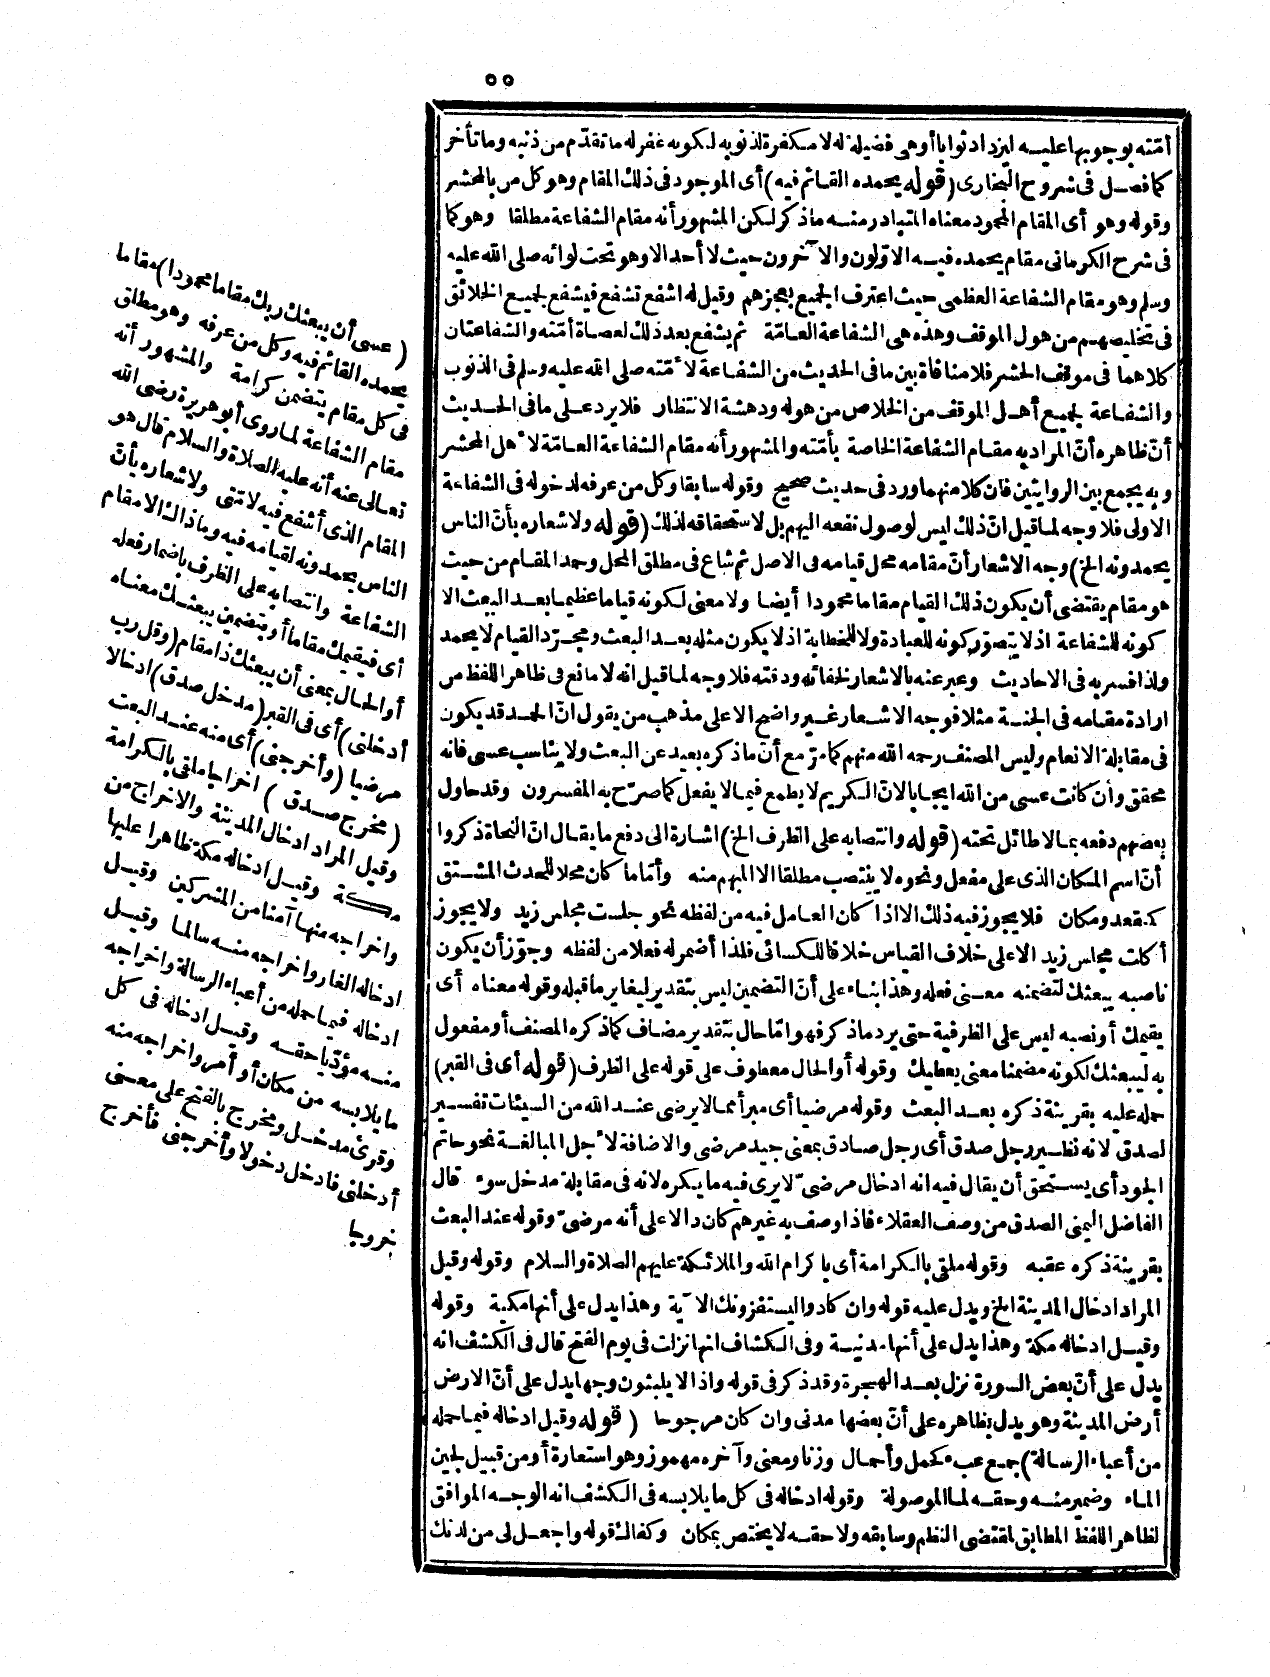 ٥٥
أمّته بوجوبها عليه ليزداد ثوابا أوهى فضيلة له لا مكفرة لذنوبه لكونه غفر له ما تقدّم من ذنبه وما تأخر
كما فصل فى شروح البخارى (قوله يحمده القائم فيه) أى الموجود فى ذلك المقام وهو كل من بالمحشر
وقوله وهو أى المقام المحمود معناه المتبادر منه ماذكر لكن المشهور أنه مقام الشفاعة مطلقا وهو كما
فى شرح الكرمانى مقام يحمده فيه الاوّلون والآخرون حيث لا أحد الا وهو تحت لوائه صلى الله عليه
وسلم وهو مقام الشفاعة العظمى حيث اعترف الجميع بعجزهم وقيل له اشفع تشفع فيشفع لجميع الخلائق
فى تخليصهم من هول الموقف وهذه هى الشفاعة العامّة ثم يشفع بعد ذلك لعصاة أمّته والشفاعتان
كلاهما فى موقف الحشر فلا منافاة بين ما فى الحديث من الشفاعة لأمّته صلى الله عليه وسلم فى الذنوب
والشفاعة لجميع أهل الموقف من الخلاص من هوله ودهشة الانتظار فلا يرد على ما فى الحديث
أنّ ظاهره أنّ المراد به مقام الشفاعة الخاصة بأمّته والمشهور أنه مقام الشفاعة العامّة لأهل المحشر
وبه يجمع بين الروايتين فان كلا منهما ورد فى حديث صحيح وقوله سابقا وكل من عرفه لدخوله فى الشفاعة
الاولى فلا وجه لما قيل انّ ذلك ليس لوصول نفعه اليهم بل لاستحقاقه لذلك (قوله ولاشعاره بأنّ الناس
يحمدونه الخ) وجه الاشعار أنّ مقامه محل قيامه فى الاصل ثم شاع فى مطلق المحل وحمد المقام من حيث
هو مقام يقتضى أن يكون ذلك القيام مقاما محمودا أيضا ولا معنى لكونه قياما عظيما بعد البعث الا
كونه للشفاعة اذ لا يتصوّر كونه للعبادة ولا للخطابة اذ لا يكون مثله بعد البعث ومجرّد القيام لا يحمد
ولذا فسر به فى الاحاديث وعبر عنه بالاشعار لخفائه ودقته فلا وجه لما قيل انه لا مانع فى ظاهر اللفظ من
ارادة مقامه فى الجنة مثلا فوجه الاشعار غير واضح الا على مذهب من يقول انّ الحمد قد يكون
فى مقابلة الانعام وليس المصنف رحمه الله منهم كما مرّ مع أنّ ما ذكره بعيد عن البعث ولا يناسب عسى فانه
محقق وأن كانت عسى من الله ايجابا لانّ الكريم لا يطمع فيما لا يفعل كما صرّح به المفسرون وقد حاول
بعضهم دفعه بما لا طائل تحته (قوله وانتصابه على الظرف الخ) اشارة الى دفع ما يقال انّ النحاة ذكروا
أنّ اسم المكان الذى على مفعل ونحوه لا ينتصب مطلقا الا المبهم منه وأمّا ما كان محلا للحدث المشتق
كمقعد ومكان فلا يجوز فيه ذلك الا اذا كان العامل فيه من لفظه نحو جلست مجلس زيد ولا يجوز
أكلت مجلس زيد الا على خلاف القياس خلافا للكسائى فلذا أضمر له فعلا من لفظه وجوّز أن يكون
ناصبه يبعثك لتضمنه معنى فعله وهذا بناء على أنّ التضمين ليس بتقدير ليغاير ما قبله وقوله معناه أى
يقيمك أو نصبه ليس على الظرفية حتى يرد ما ذكر فهو امّا حال بتقدير مضاف كما ذكره المصنف أو مفعول
به ليبعثك لكونه مضمنا معنى يعطيك وقوله أو الحال معطوف على قوله على الظرف (قوله أى فى القبر)
حمله عليه بقرينة ذكره بعد البعث وقوله مرضيا أى مبرأ مما لا يرضى عند الله من السيئات تفسير
لصدق لانه نظير رجل صدق أى رجل صادق بمعنى جيد مرضى والاضافة لأجل المبالغة نحو حاتم
الجود أى يستحق أن يقال فيه انه ادخال مرضىّ لا يرى فيه ما يكره لانه فى مقابلة مدخل سوء قال
الفاضل اليمنى الصدق من وصف العقلاء فاذا وصف به غيرهم كان دالا على أنه مرضىّ وقوله عند البعث
بقرينة ذكره عقبه وقوله ملقى بالكرامة أى باكرام الله والملائكة عليهم الصلاة والسلام وقوله وقيل
المراد ادخال المدينة الخ ويدل عليه قوله وان كادوا ليستفزونك الآية وهذا يدل على أنها مكية وقوله
وقيل ادخاله مكة وهذا يدل على أنها مدنية وفى الكشاف انها نزلت فى يوم الفتح قال فى الكشف انه
يدل على أنّ بعض السورة نزل بعد الهجرة وقد ذكر فى قوله واذا لا يلبثون وجها يدل على أنّ الارض
أرض المدينة وهو يدل بظاهره على أنّ بعضها مدنى وان كان مرجوحا (قوله وقيل ادخاله فيما حمله
من أعباء الرسالة) جمع عبء كحمل وأحمال وزنا ومعنى وآخره مهموز وهو استعارة أو من قبيل لجين
الماء وضمير منه وحقه لما الموصولة وقوله ادخاله فى كل ما يلابسه فى الكشف انه الوجه الموافق
لظاهر اللفظ المطابق لمقتضى النظم وسابقه ولاحقه لا يختص بمكان وكفالة قوله واجعل لى من لدنك
(عسى أن يبعثك ربك مقاما محمودا) مقاما
يحمده القائم فيه وكل من عرفه وهو مطلق
فى كل مقام يتضمن كرامة والمشهور أنه
مقام الشفاعة لما روى أبو هريرة رضى الله
تعالى عنه أنه عليه الصلاة والسلام قال هو
المقام الذى أشفع فيه لامّتى ولاشعاره بأنّ
الناس يحمدونه لقيامه فيه وما ذاك الا مقام
الشفاعة وانتصابه على الظرف باضمار فعله
أى فيقيمك مقاما أو بتضمين يبعثك معناه
أو الحال بمعنى أن يبعثك ذا مقام (وقل رب
أدخلنى) أى فى القبر (مدخل صدق) ادخالا
مرضيا (وأخرجنى) أى منه عند البعث
(مخرج صدق) اخراجا ملقى بالكرامة
وقيل المراد ادخال المدينة والاخراج من
مكة وقيل ادخاله مكة ظاهرا عليها
واخراجه منها آمنا من المشركين وقيل
ادخاله الغار واخراجه منه سالما وقيل
ادخاله فيما حمله من أعباء الرسالة واخراجه
منه مؤدّيا حقه وقيل ادخاله فى كل
ما يلابسه من مكان أو أمر واخراجه منه
وقرئ مدخل ومخرج بالفتح على معنى
أدخلنى فادخل دخولا وأخرجنى فأخرج
خروجا